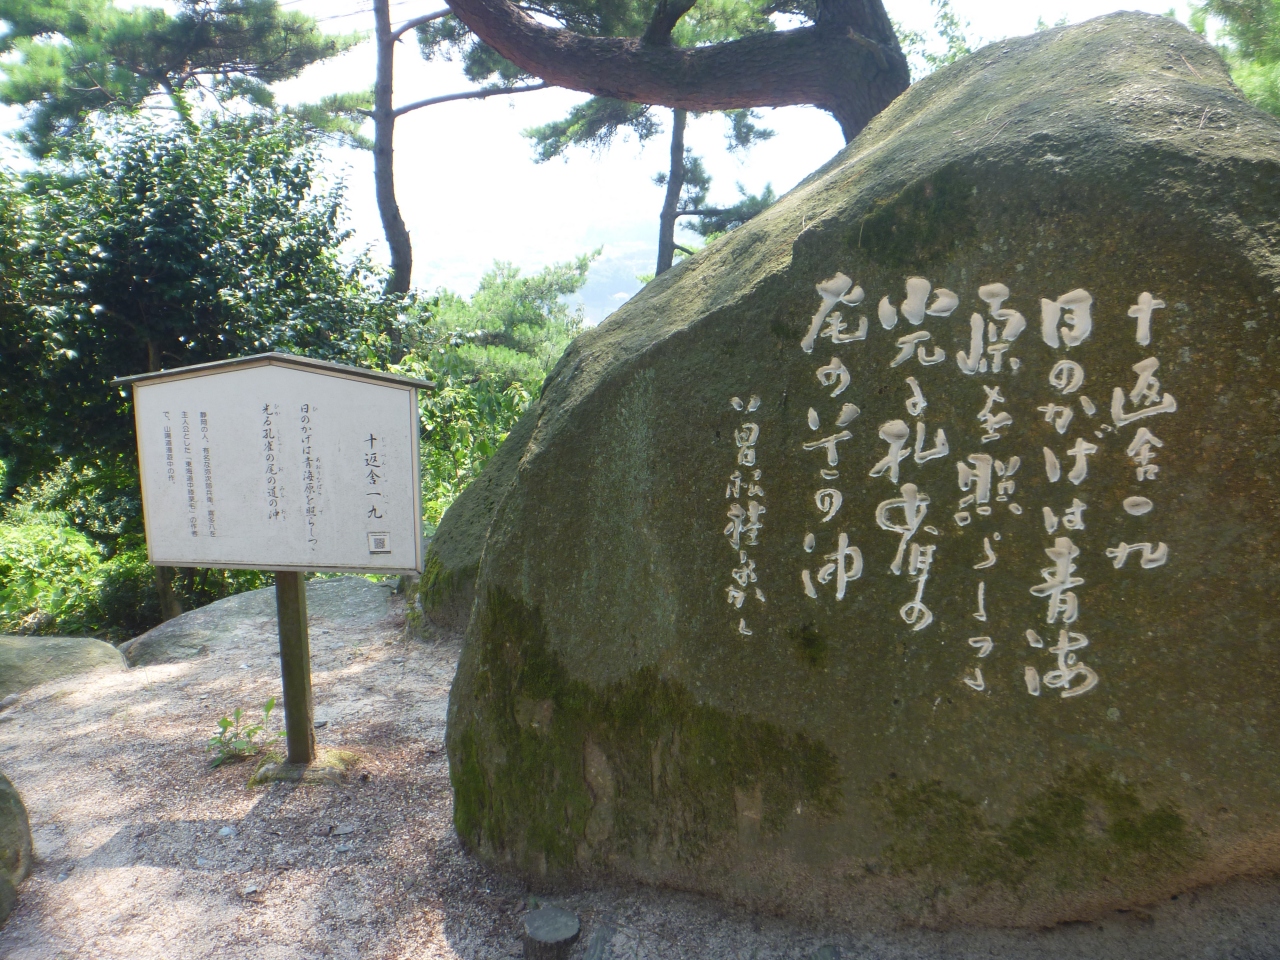 十返舎一九
日のかげは青海
原を照らしつゝ
光る孔雀の
尾の道の沖
十返舎一九
日のかげは青海原を照らしつゝ
光る孔雀の尾の道の沖
静岡の人。有名な弥次郎兵衛、喜多八を
主人公とした「東海道中膝栗毛」の作者
で、山陽道漫遊中の作。